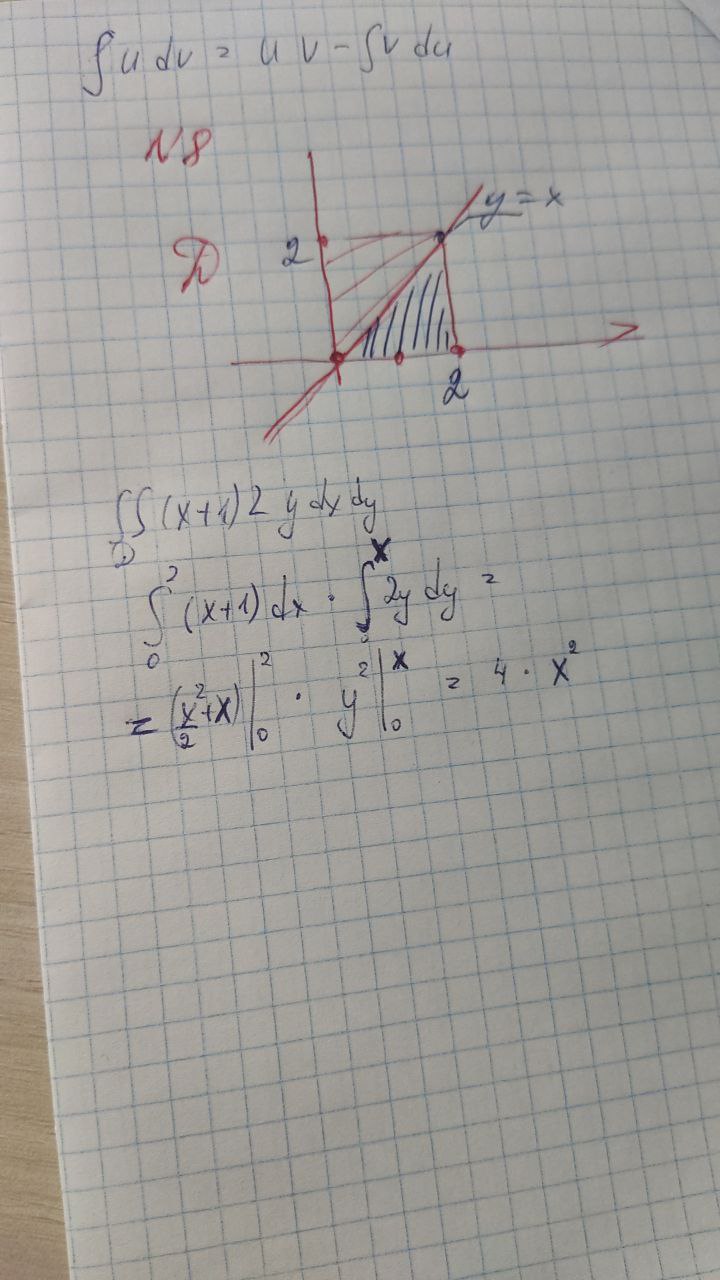 ∫u dv = u v - ∫v du
N8
y = x
2
D
2
∫∫ (x+1) 2 y dx dy
D
∫₀² (x+1) dx · ∫₀ˣ 2y dy =
= (x²/2 + x) |₀² · y² |₀ˣ = 4 · x²